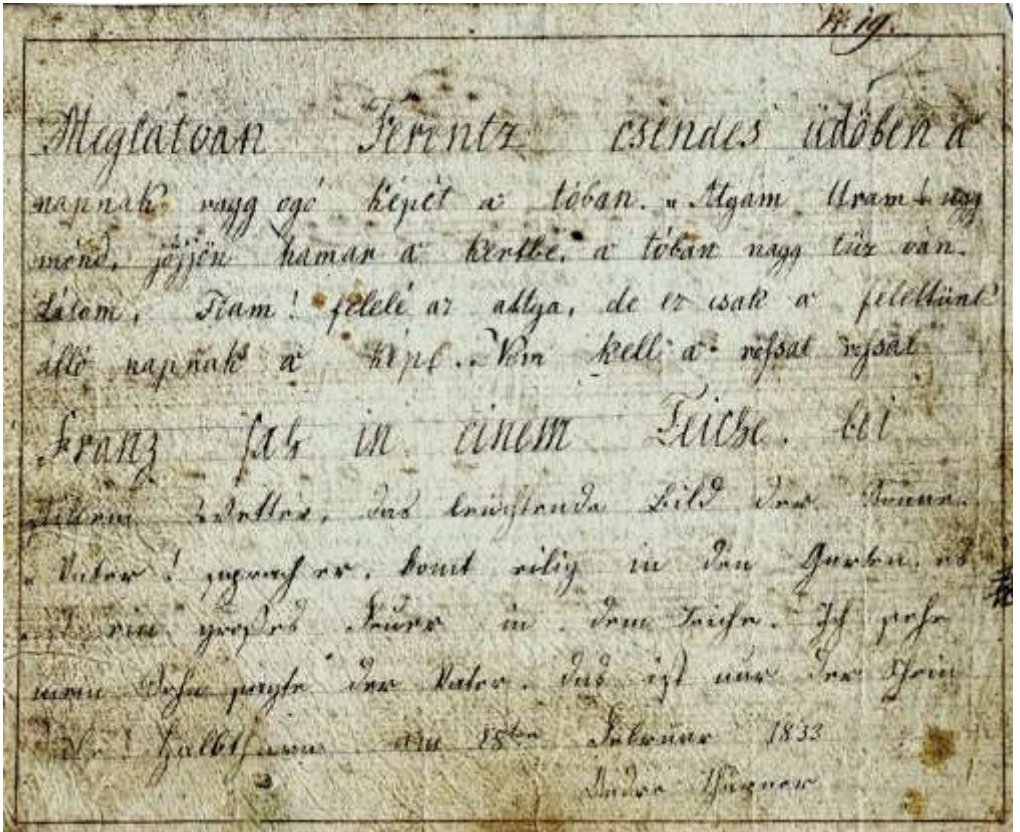 № 19.
Meglátván Ferentz csendes üdőben a'
napnak ragyogó képét a' tóban. „Atyam Uram! úgy
mond, jöjjön hamar a' kertbe, a' tóban nagy tűz van.
Látom, Fiam! felelé az attya, de ez csak a' felettünk
álló napnak a' képe.. Nem kell a' rossat rossal
Franz sah in einem Teiche. bei
stillem Wetter, das leuchtende Bild der Sonne.
„Vater! sprach er. komt eilig in den Garten, es
ist ein großes Feuer in dem Teiche. Ich sehe
mein Sohn sagte der Vater. das ist nur der Schein
Halbthurn am 18ten Februar 1833
Andre